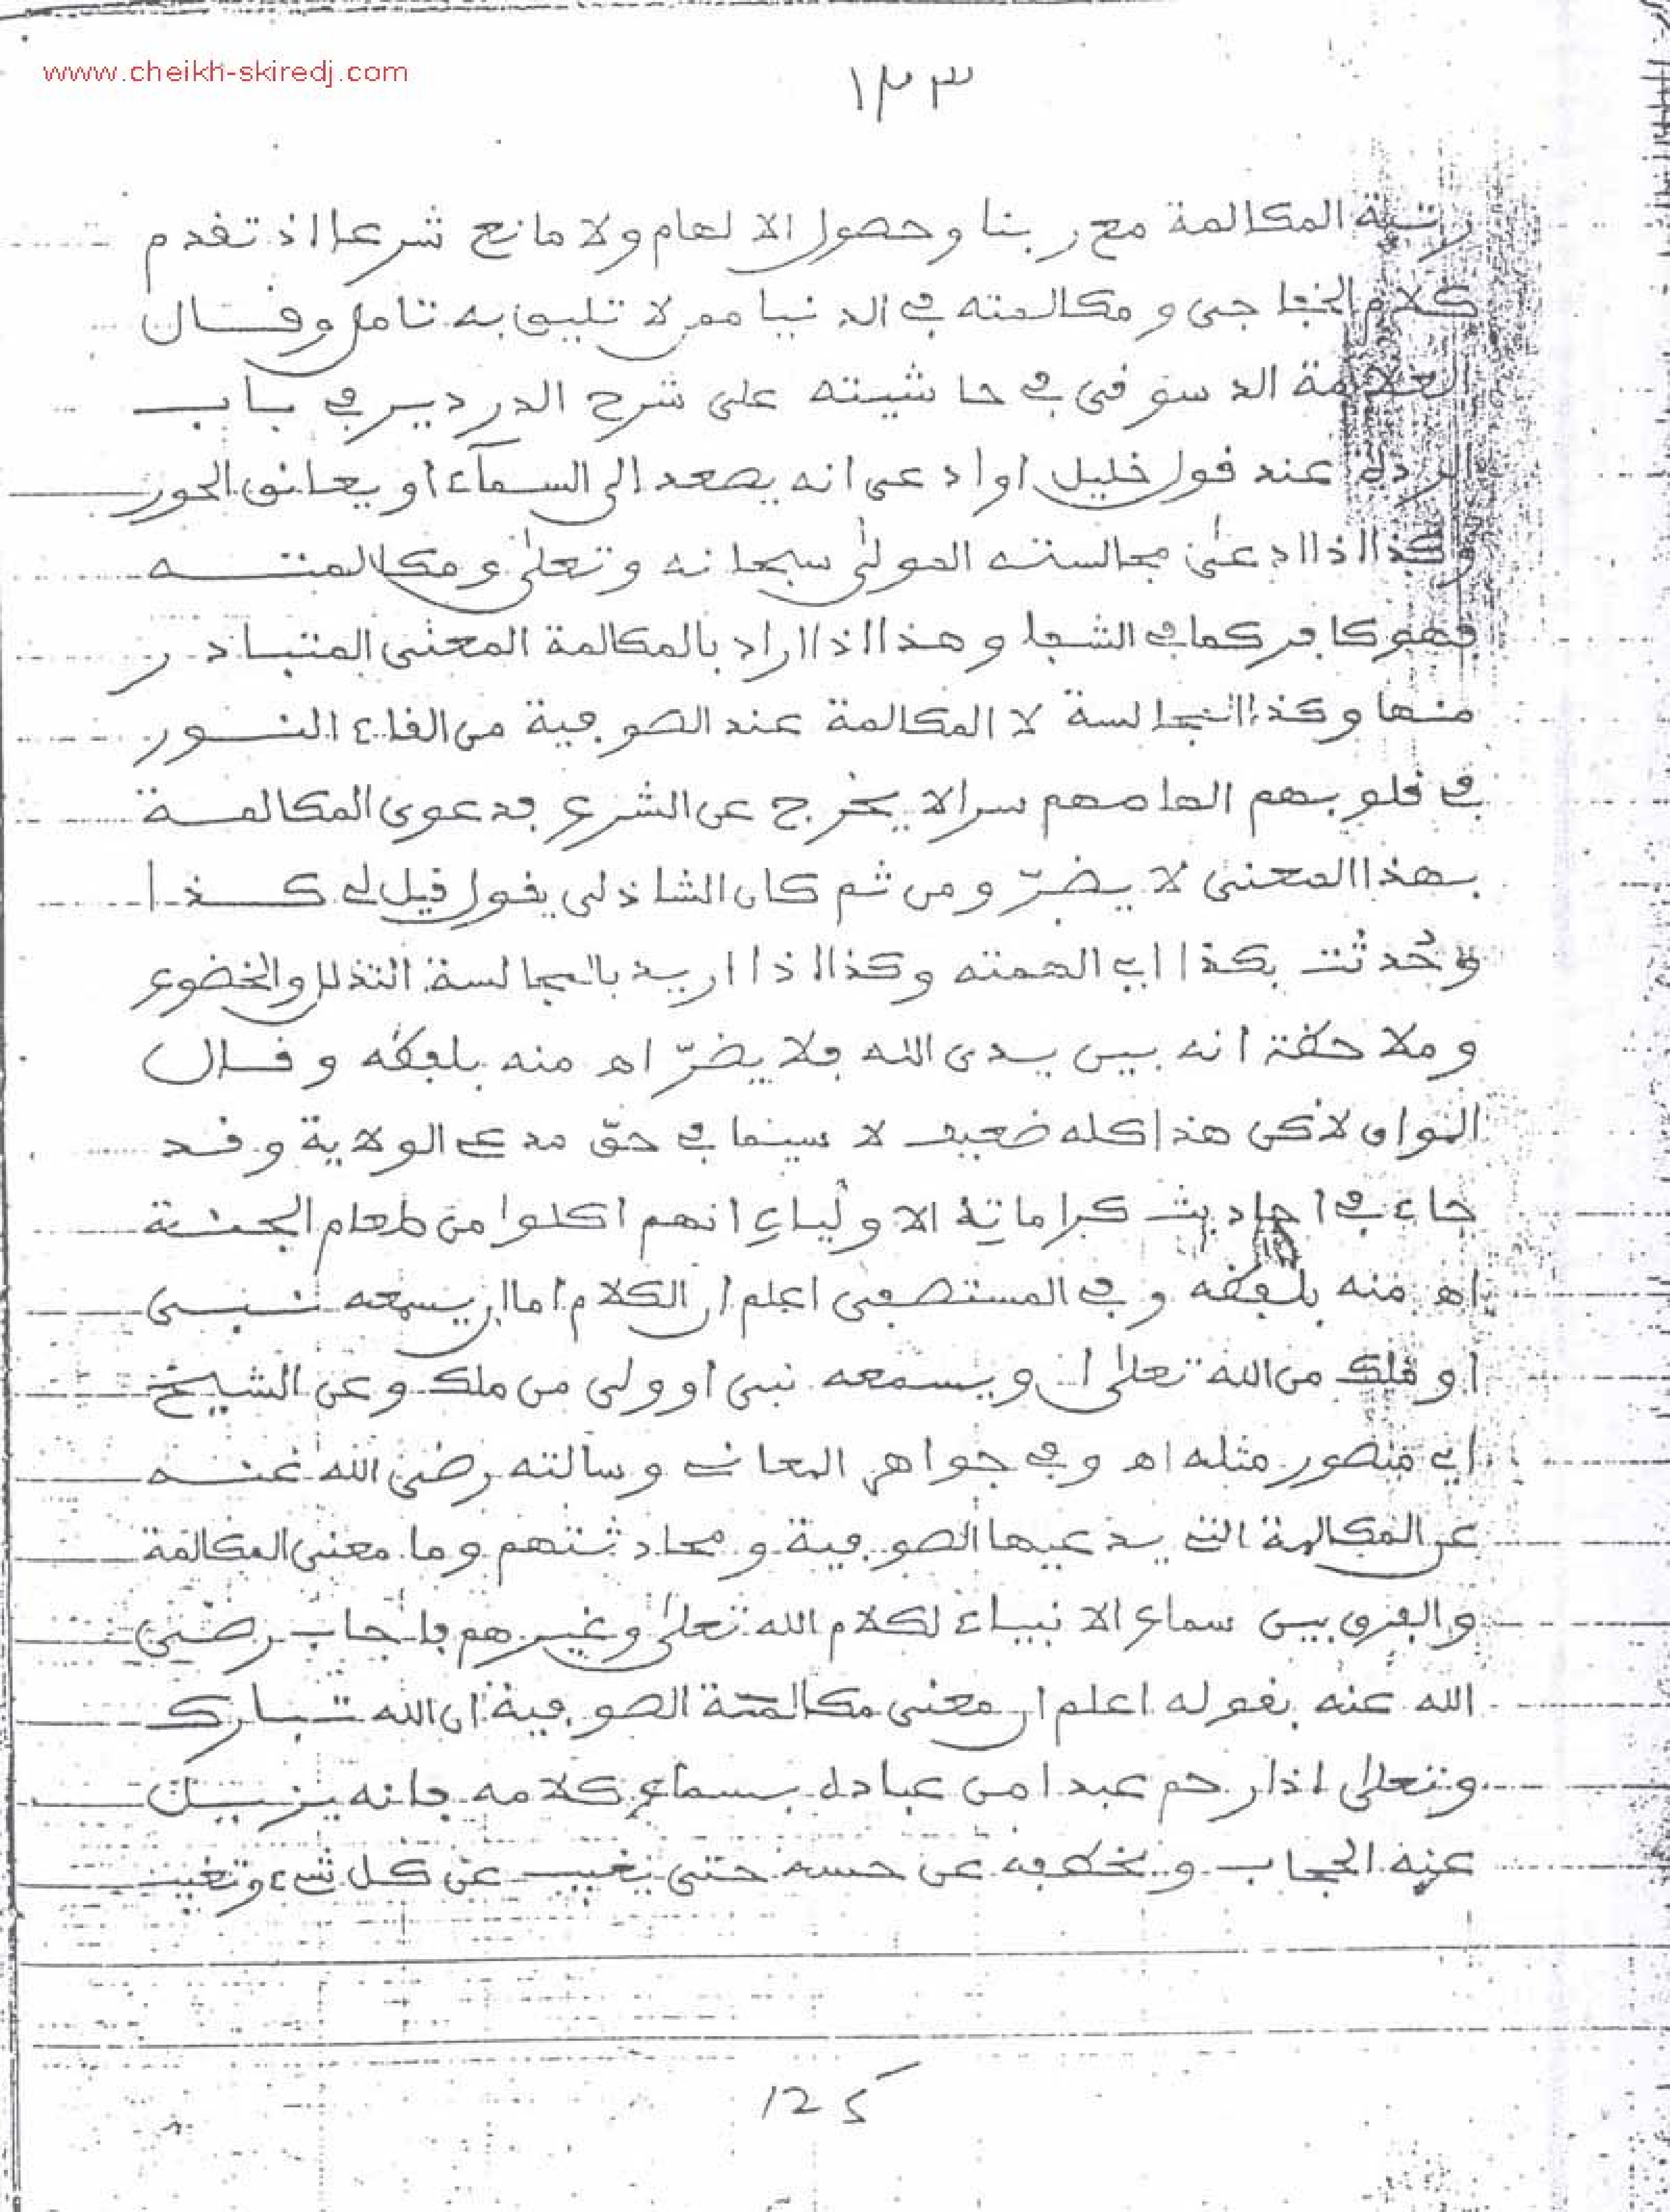 www.cheikh-skiredj.com
١٣٣
رتبة المكالمة مع ربنا وحصول الالهام ولا مانع شرعا اذ تقدم
كلام الخفاجى ومكالمته في الدنيا ممن لا تليق به تامل وقال
العلامة الدسوقى في حاشيته على شرح الدردير في باب
الردة عند قول خليل او ادعى انه يصعد الى السمآء او يعانق الحور
وكذا اذا ادعى مجالسته المولى سبحانه وتعلى ومكالمته
فهو كافر كما في الشفا وهذا اذا اراد بالمكالمة المعنى المتبادر
منها وكذا المجالسة لا المكالمة عند الصوفية من القاء النور
في قلوبهم الهامهم سرا لا يخرج عن الشرع فدعوى المكالمة
بهذا المعنى لا يضرّ ومن ثم كان الشاذلى يقول قيل لي كذا
وحُدثت بكذا اي الهمته وكذا اذا اريد بالمجالسة التذلل والخضوع
وملاحظة انه بين يدى الله فلا يضرّ اه منه بلفظه وقال
المواق لاكن هذا كله ضعيف لا سيما في حقّ مدعي الولاية وقد
جاء في احاديث كراماتِ الاولياءِ انهم اكلوا من طعام الجنة
اه منه بلفظه وفي المستصفى اعلم ان الكلام اما ان يسمعه نبي
او ملك من الله تعلى او يسمعه نبى او ولى من ملك وعن الشيخ
ابي منصور مثله اه وفي جواهر المعاني وسالته رضى الله عنه
عن المكالمة التي يدعيها الصوفية ومحادثتهم وما معنى المكالمة
والفرق بين سماع الانبياء لكلام الله تعلى وغيرهم فاجاب رضى
الله عنه بقوله اعلم ان معنى مكالمة الصوفية ان الله تبارك
وتعلى اذا رحم عبدا من عباده بسماع كلامه فانه يزيل
عنه الحجاب ويخطفه عن حسه حتى يغيب عن كل شىء وتغيب
125